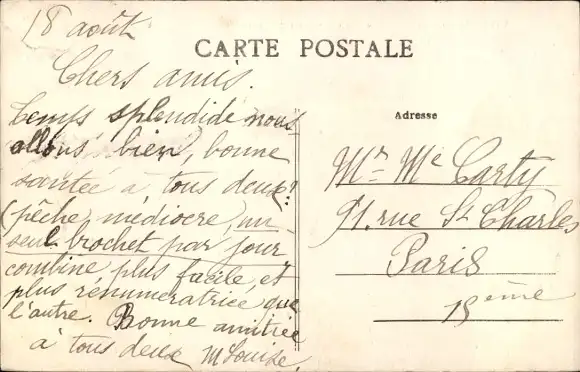 18 août
CARTE POSTALE
Chers amis.
Temps splendide nous
allons bien, bonne
santée à tous deux!
(pêche médiocre, un
seul brochet par jour
combine plus facile et
plus rénumeratrice que
l'autre. Bonne amitiée
à tous deux M Louise.
Adresse
Mr Mc Carty
91. rue St Charles
Paris
15ème